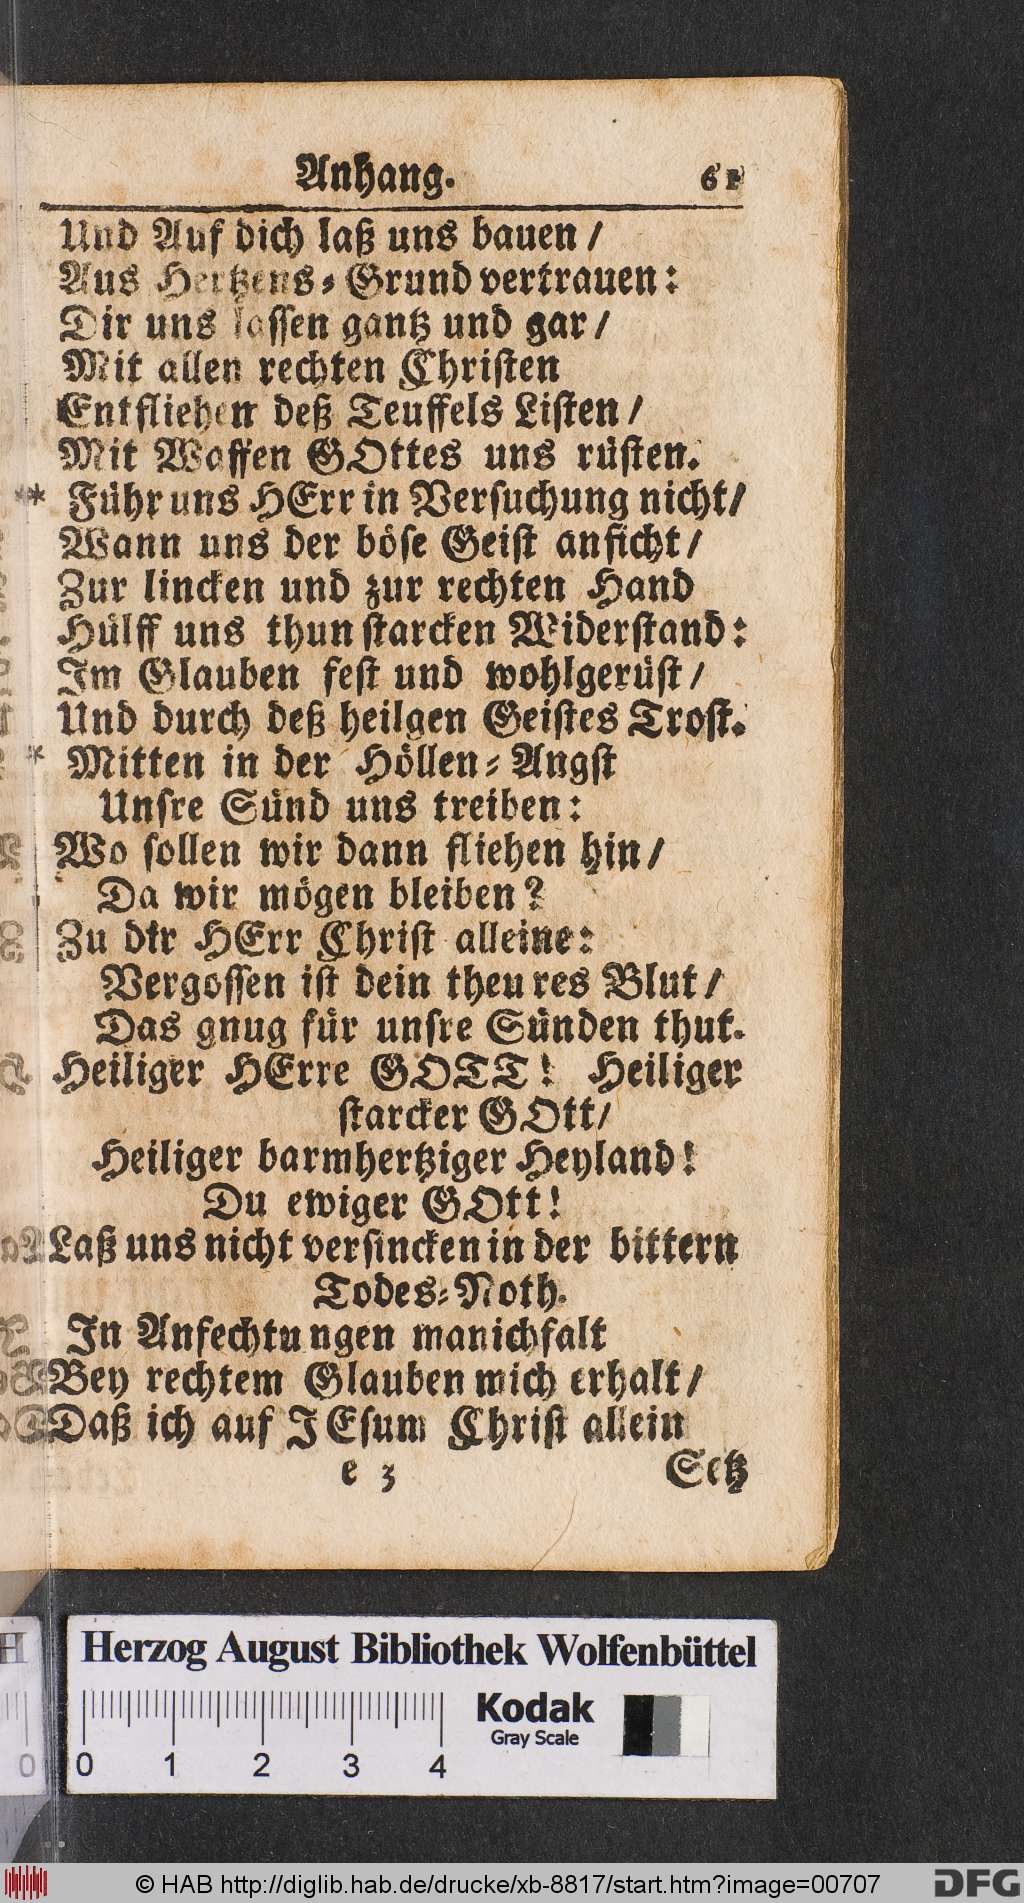 Anhang. 61
Und Auf dich laß uns bauen /
Aus Hertzens-Grund vertrauen:
Dir uns lassen gantz und gar /
Mit allen rechten Christen
Entfliehen deß Teuffels Listen /
Mit Waffen GOttes uns rüsten.
** Führ uns HErr in Versuchung nicht /
Wann uns der böse Geist anficht /
Zur lincken und zur rechten Hand
Hülff uns thun starcken Widerstand:
Im Glauben fest und wohlgerüst /
Und durch deß heilgen Geistes Trost.
* Mitten in der Höllen-Angst
Unsre Sünd uns treiben:
Wo sollen wir dann fliehen hin /
Da wir mögen bleiben?
Zu dir HErr Christ alleine:
Vergossen ist dein theures Blut /
Das gnug für unsre Sünden thut.
Heiliger HErre GOTT! Heiliger
starcker GOtt /
Heiliger barmhertziger Heyland!
Du ewiger GOtt!
Laß uns nicht versincken in der bittern
Todes-Noth.
In Anfechtungen manichfalt
Bey rechtem Glauben mich erhalt /
Daß ich auf JEsum Christ allein
e 3 Setz
Herzog August Bibliothek Wolfenbüttel
Kodak
Gray Scale
0 0 1 2 3 4
© HAB http://diglib.hab.de/drucke/xb-8817/start.htm?image=00707
DFG